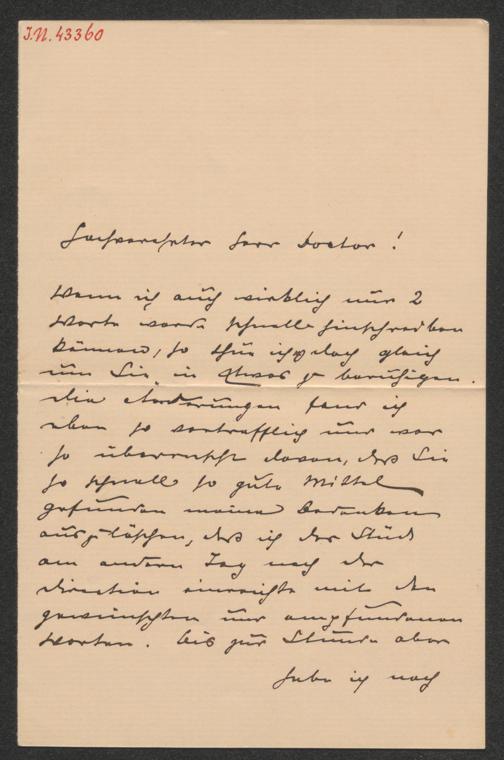 J.N. 43360
Hochverehrter Herr Doctor!
Wenn ich auch wirklich nur 2
Worte werde schnell hinschreiben
können, so thue ich doch gleich
um Sie in Etwas zu beruhigen.
Die Änderungen fand ich
eben so vortrefflich und war
so überrascht davon, daß Sie
so schnell so gute Mittel
gefunden meine Bedenken
auszulöschen, daß ich das Stück
am andern Tag nach der
Direction einreichte mit den
gewünschten und empfundenen
Worten. Bis zur Stunde aber
habe ich noch